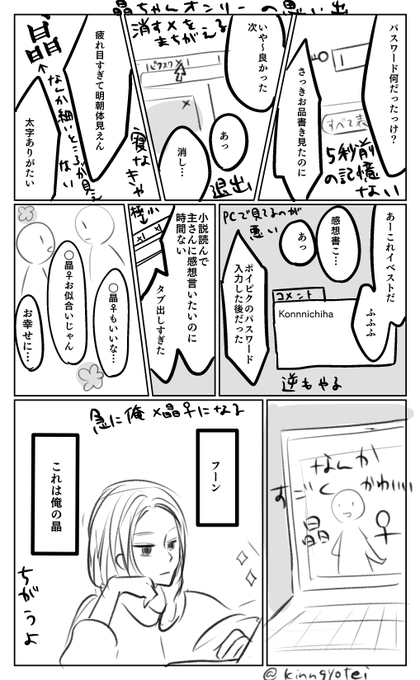 晶ちゃんオンリーの悪い出
パスワード何だったっけ？
さっきお品書き見たのに
すべて表
5秒前の記憶ない
いや〜良かった
次
消す〆を
まちがえる
パスワ
あっ
消し…
退出
疲れ目すぎて明朝体見えん
晶
↑なんか細いところが見えない
太字ありがたい
寝なきゃ
あーこれイベストだ
ふふふ
感想書こ…
あっ
PCで見てるのが
悪い
コメント
Konnnichiha
ポイピクのパスワード
入力した後だった
逆もやる
極小
小説読んで
主さんに感想言いたいのに
時間ない
タブ出しすぎた
〇晶♀もいいな…
〇晶♀お似合いじゃん
お幸せに…
なんか
すごく かわいい
晶 ♀
急に俺×晶♀になる
フーン
これは俺の晶
ちがうよ
@kinngyotei